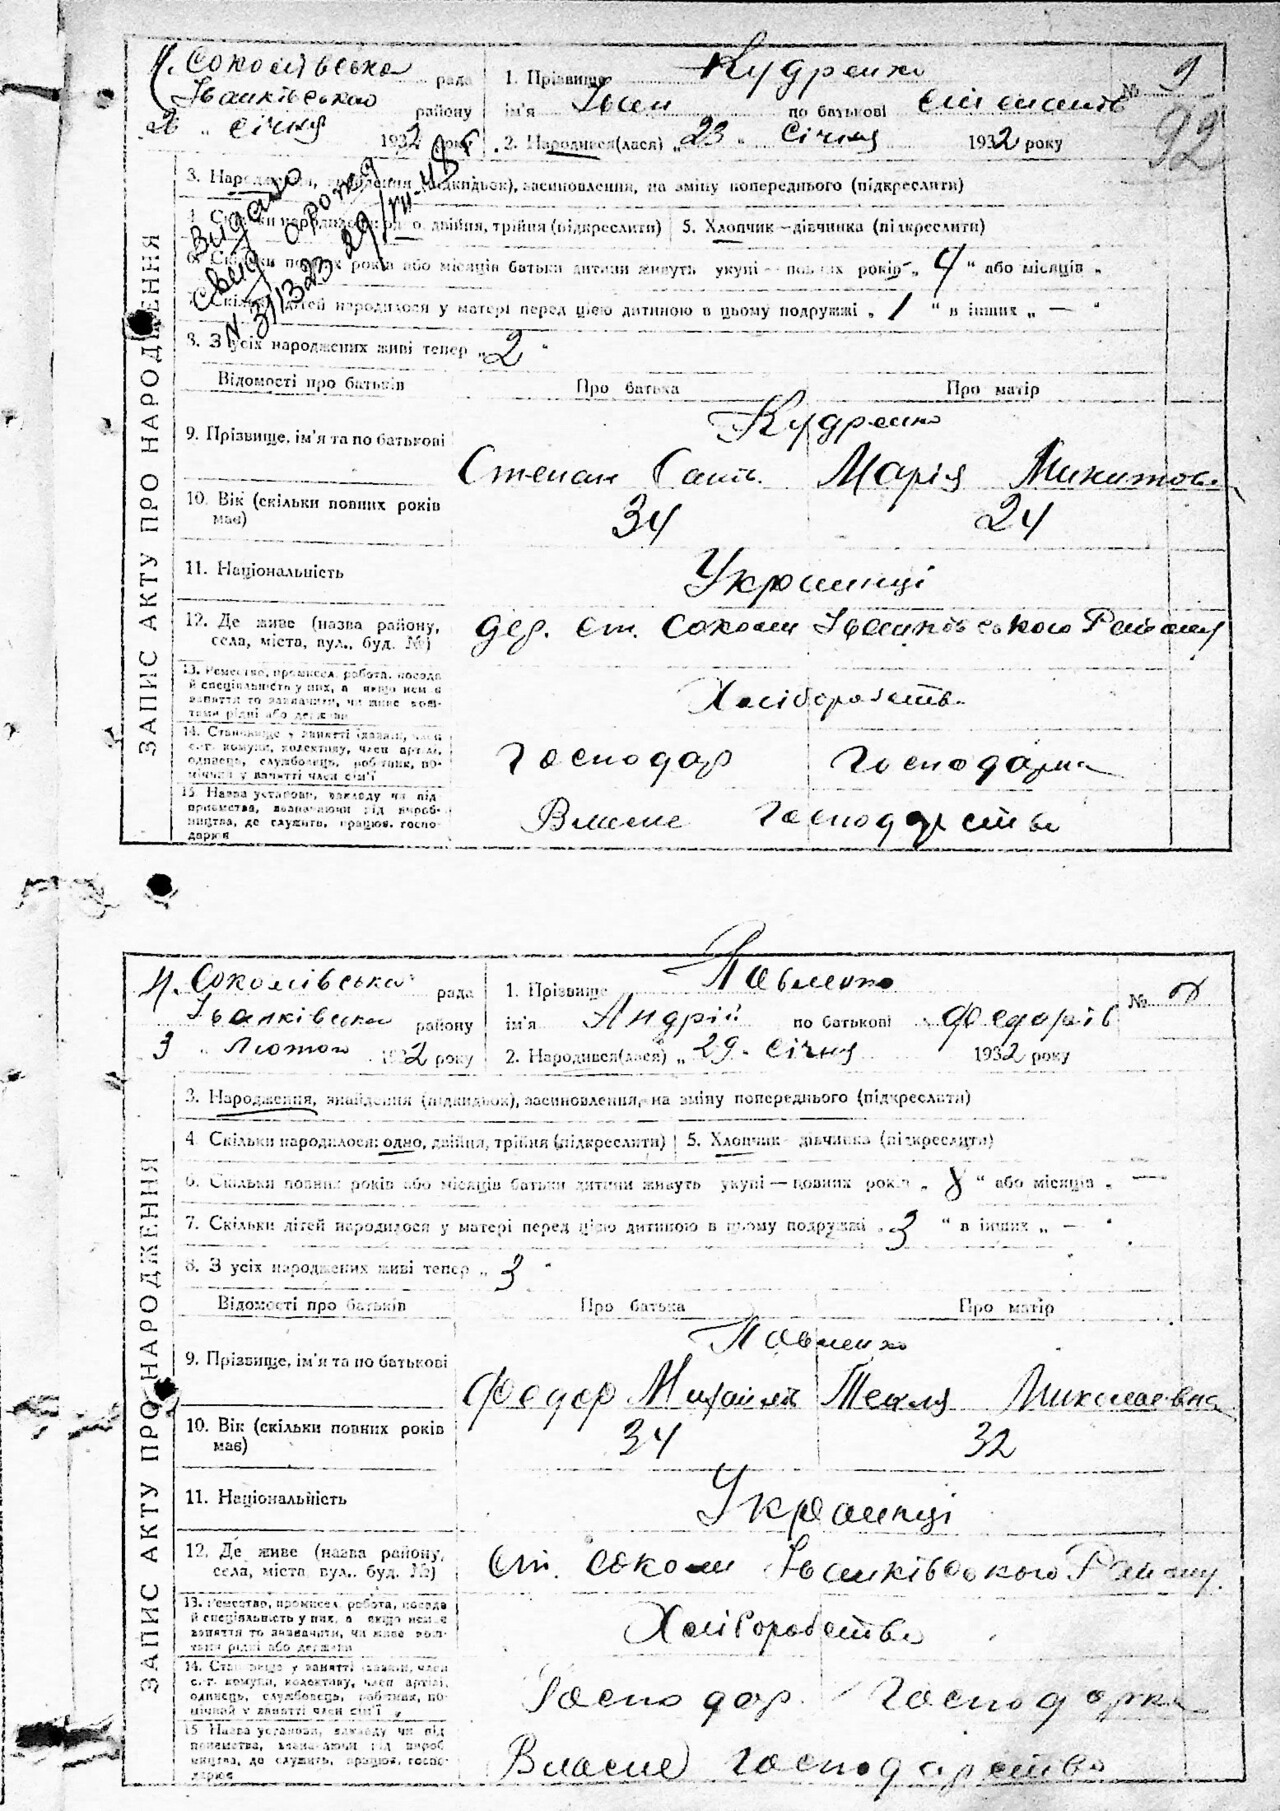 Соколівська рада
Іванківського району
26 „ січня 1932 року
1. Прізвище Кудренко
ім'я Іван по батькові
2. Народився(лася) „ 23 „ Січня 1932 року
№ 1
92
Видано
свид
29/VII-48 г
3. Народження, знайдення (підкидьок), засиновлення, на зміну попереднього (підкреслити)
4. Скільки народилося: одно, двійня, трійня (підкреслити) 5. Хлопчик—дівчинка (підкреслити)
6. Скільки повних років або місяців батьки дитини живуть укупі — повних років „ 4 “ або місяців „
7. Скільки дітей народилося у матері перед цією дитиною в цьому подружжі „ 1 “ в інших „ — “
8. З усіх народжених живі тепер „ 2 “
ЗАПИС АКТУ ПРО НАРОДЖЕННЯ
Відомості про батьків Про батька Про матір
9. Прізвище, ім'я та по батькові Кудренко
Степан Марія Микитовн
10. Вік (скільки повних років має) 34 24
11. Національність Українці
12. Де живе (назва району, села, міста, вул., буд. №) ст. Соколи Іванківського Району
13. Ремество, промисел, робота, посада й спеціальність у них, а якщо нема заняття то зазначити, чи живе коштами рідні або держави Хліборобство
14. Становище у занятті (хазяїн, член с.-г. комуни, колективу, член артілі, одинець, службовець, робітник, помічний у занятті член сім'ї Господар Господарка
15. Назва установи, закладу чи підприємства, зазначаючи рід виробництва, де служить, працює, господарює Власне господарство
Соколівська рада
Іванківська району
3 „ Лютого 1932 року
1. Прізвище Павленко
ім'я Андрій по батькові Федорів
2. Народився(лася) „ 29 „ Січня 1932 року
№ 2
3. Народження, знайдення (підкидьок), засиновлення, на зміну попереднього (підкреслити)
4. Скільки народилося: одно, двійня, трійня (підкреслити) 5. Хлопчик—дівчинка (підкреслити)
6. Скільки повних років або місяців батьки дитини живуть укупі — повних років „ 8 “ або місяців „ —
7. Скільки дітей народилося у матері перед цією дитиною в цьому подружжі „ 3 “ в інших „ — “
8. З усіх народжених живі тепер „ 3 “
ЗАПИС АКТУ ПРО НАРОДЖЕННЯ
Відомості про батьків Про батька Про матір
9. Прізвище, ім'я та по батькові Павленко
Федор Михайлів Текля Миколаевна
10. Вік (скільки повних років має) 34 32
11. Національність Українці
12. Де живе (назва району, села, міста вул., буд. №) ст. Соколи Іванківського Району
13. Ремество, промисел, робота, посада й спеціальність у них, а якщо нема заняття то зазначити, чи живе коштами рідні або держави Хліборобство
14. Становище у занятті (хазяїн, член с.-г. комуни, колективу, член артілі, одинець, службовець, робітник, помічний у занятті член сім'ї Господар Господарка
15. Назва установи, закладу чи підприємства, зазначаючи рід виробництва, де служить, працює, господарює Власне господарство